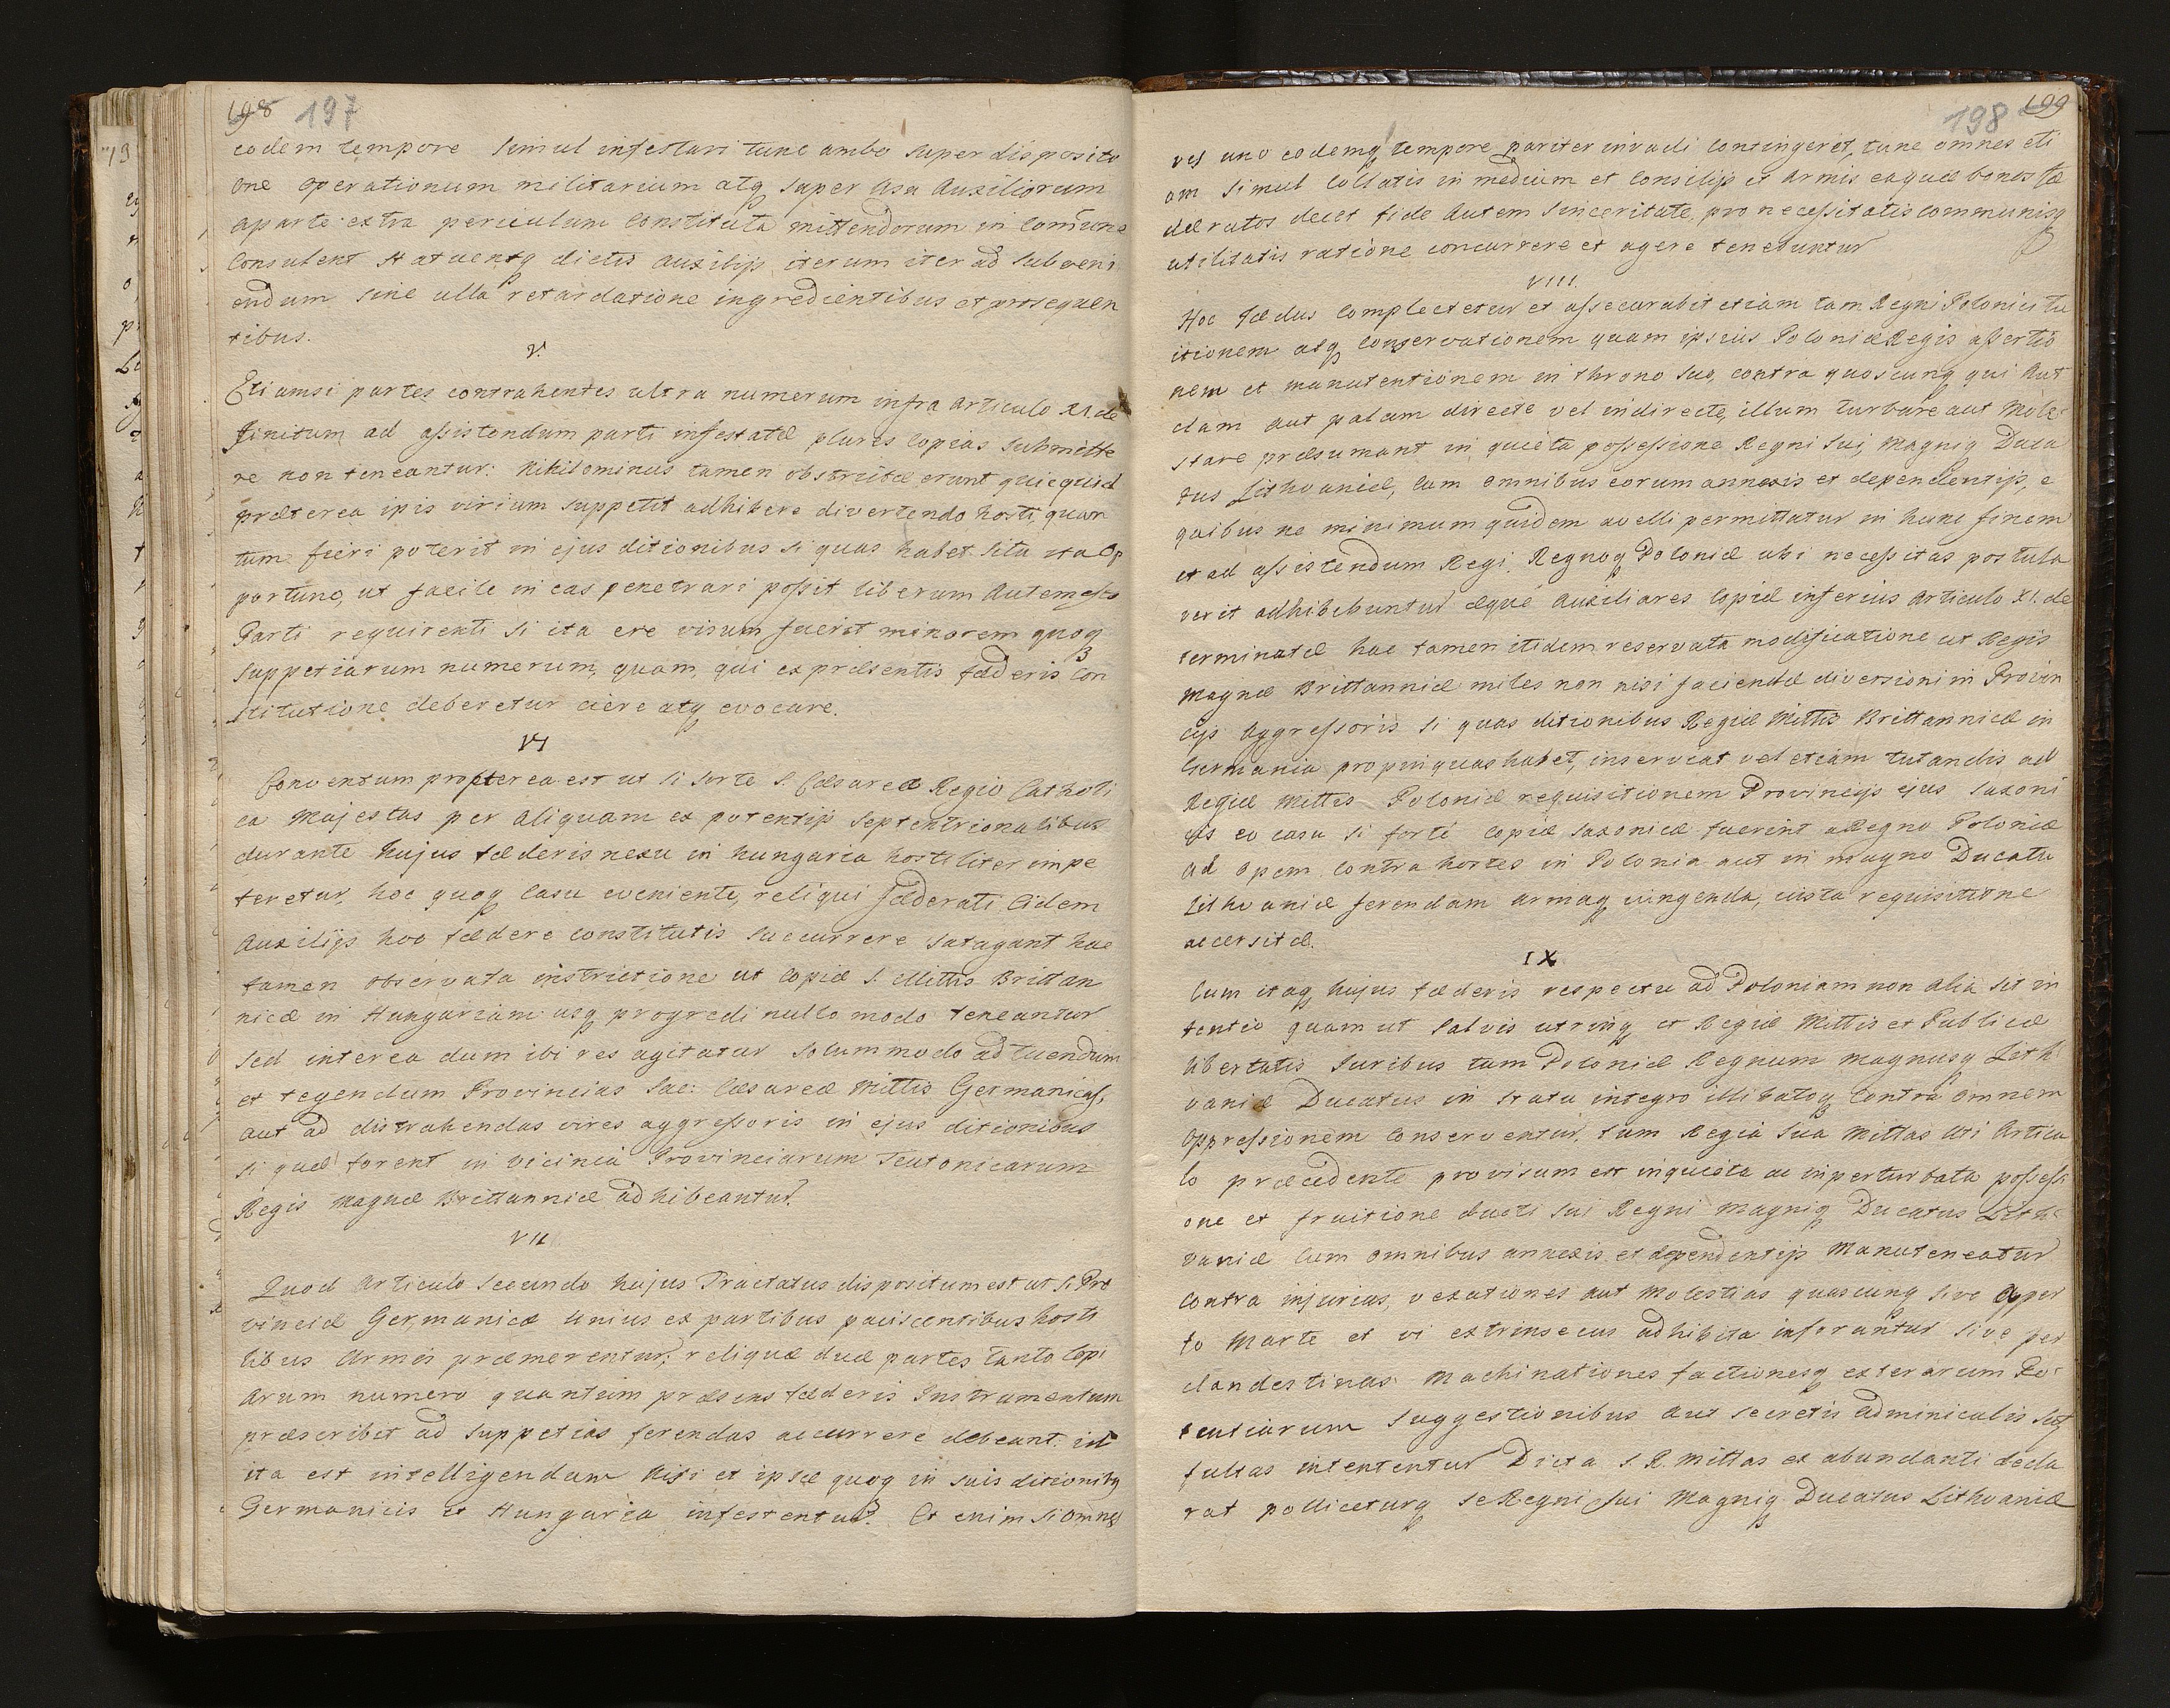 198 197
eodem tempore simul infestari tunc ambo super dispositi
one operationum militarium atq super usu Auxiliorum
aparte extra periculum constituta mittendorum in comune
Consulent statuentq dictis auxilijs iterum iter ad subveni
endum sine ulla retardatione ingredientibus et prosequen
tibus.
V.
Etiamsi partes contrahentes ultra numerum infra articulo XI. de
finitum ad assistendum parti infestatæ plures copias submitte
re non teneantur: Nihilominus tamen obstrictæ erunt quicquid
præterea ipis virium suppetit adhibere divertendo hosti, quan
tum fieri poterit in ejus ditionibus si quas habet situ ita op
portuno, ut facile in eas penetrari possit liberum autem esto
Parti requirenti si ita ere visum fuerit minorem quoq
suppetiarum numerum, quam, qui ex præsentis fæderis con
stitutione deberetur ciere atq evocare.
VI
Conventum propterea est ut si forte S. Cæsareæ Regio Catholi
ca Majestas per aliquam ex potentijs septentrionalibus
durante hujus fæderis nexu in hungaria hostiliter impe
teretur, hoc quoq casu eveniente, reliqui fæderati Eidem
Auxilijs hoc fædere constitutis succurrere satagant hac
tamen observata instrictione ut copiæ S. Mittis Brittan
nicæ in Hungariam usq progredi nullo modo teneantur
sed interea dum ibi res agitatur solummodo ad tuendum
et tegendum Provincias Sac: Cæsareæ Mittis Germanicas,
aut ad distrahendas vires aggressoris in ejus ditionibus
si quæ forent in vicinia Provinciarum Teutonicarum
Regis Magnæ Brittanniæ adhibeantur.
VII
Quod Articulo secundo hujus Tractatus dispositum est ut si Pro
vinciæ Germanicæ unius ex partibus paciscentibus hosti
libus Armis præmerentur, reliquæ duæ partes tanto copi
arum numero quantum præsens fæderis Instrumentum
præscribit ad suppetias ferendas accurrere debeant: id
ita est intelligendum Nisi et ipsæ quoq in suis ditionibq
Germanicis et Hungaria infestentur. Et enim si omnes
198 199
vel uno eodemq tempore pariter invadi contingeret, tunc omnes eti
am simul collatis in medium et consilijs et Armis eaquæ bonos fæ
deratos decet fide autem sinceritate, pro necessitatis communisq
utilitatis ratione concurrere et agere tenebuntur
VIII.
Hoc fædus complectetur et assecurabit etiam tam Regni Polonici tu
itionem atq conservationem quam ipsius Poloniæ Regis assertio
nem et manutentionem in throno suo, contra quoscunq qui aut
clam aut palam directe vel indirecte, illum turbare aut Mole
stare præsumant in quieta possessione Regni sui, Magniq Duca
tus Lithvaniæ, cum omnibus eorum annexis et dependentijs, e
quibus ne minimum quidem avelli permittatur in hunc finem
et ad assistendum Regi, Regnoq Poloniæ ubi necessitas postula
verit adhibebuntur æque Auxiliares copiæ inferius Articulo XI. de
terminatæ hac tamen itidem reservata modificatione ut Regis
Magnæ Brittanniæ miles non nisi faciendæ diversioni in Provin
cijs Aggressoris si quas ditionibus Regiæ Mittis Brittannicæ in
Germania propinquas habet, inserviat vel etiam tutandis ad
Regiæ Mittis Poloniæ requisitionem Provincijs ejus Saxoni
cis eo casu si forte copiæ Saxonicæ fuerint a Regno Poloniæ
ad opem contra hostes in Polonia aut in magno Ducatu
Lithvaniæ ferendam armaq jungenda, justa requisitione
accersitæ.
IX
Cum itaq hujus fæderis respectu ad Poloniam non alia sit in
tentio quam ut salvis utrinq et Regiæ Mittis et Publicæ
libertatis Juribus tam Poloniæ Regnum Magnusq Lith
vaniæ Ducatus in statu integro illibatoq contra omnem
Oppressionem conserventur, tum Regia sua Mittas uti Articu
lo præcedente provisum est inquieta ac inperturbata possessi
one et fruitione dicti sui Regni Magniq Ducatus Lith
vaniæ cum omnibus annexis et dependentijs Manuteneatur
Contra injurias, vexationes aut Molestias quascunq sive Aper
to Marte et vi extrinsecus adhibita inferantur sive per
clandestinas Machinationes factionesq exterarum Po
tentiarum suggestionibus aut secretis adminiculis suf
fultas intententur Dicta S. R. Mittas ex abundanti decla
rat polliceturq se Regni sui Magniq Ducatus Lithvaniæ